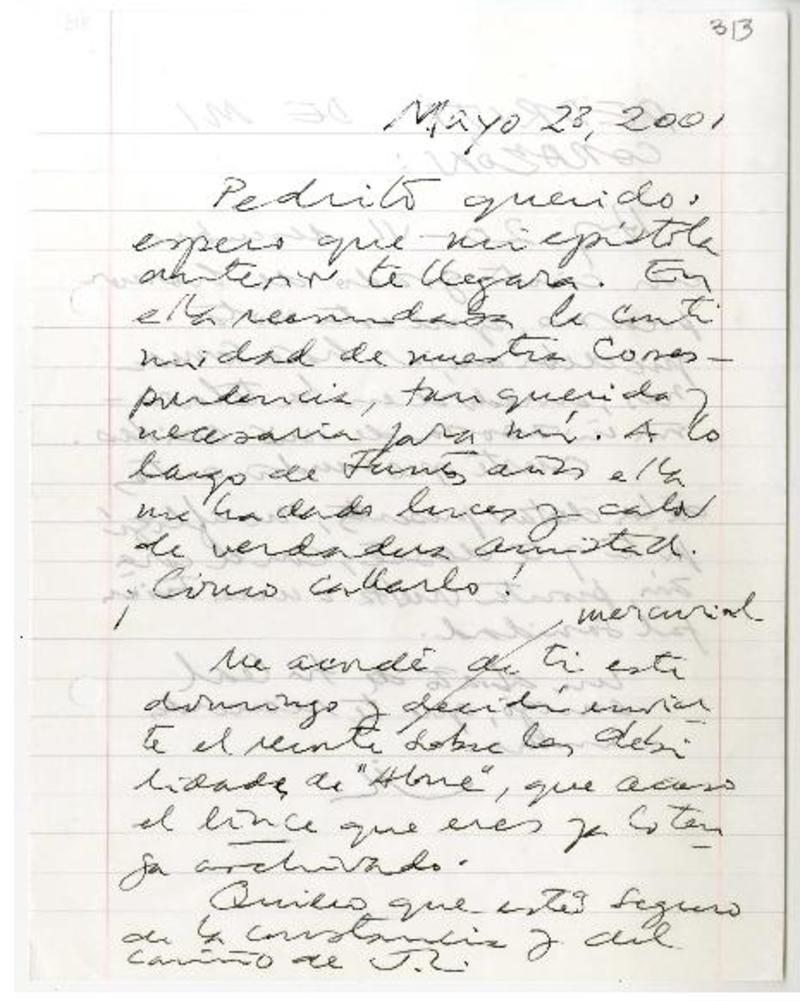 313
Mayo 23, 2001
Pedrito querido:
espero que mi epístola
anterior te llegara. En
ella reanudaba la conti
nuidad de nuestra Corres-
pondencia, tan querida y
necesaria para mí. A lo
largo de tantos años ella
me ha dado luces y calor
de verdadera amistad.
¡Cómo callarlo!
mercurial
Me acordé de ti este
domingo y decidí enviar
te el recorte sobre las debi
lidades de "Alone", que acaso
el lince que eres ya lo ten
ga archivado.
Quiero que estés seguro
de la constancia y del
cariño de J.L.